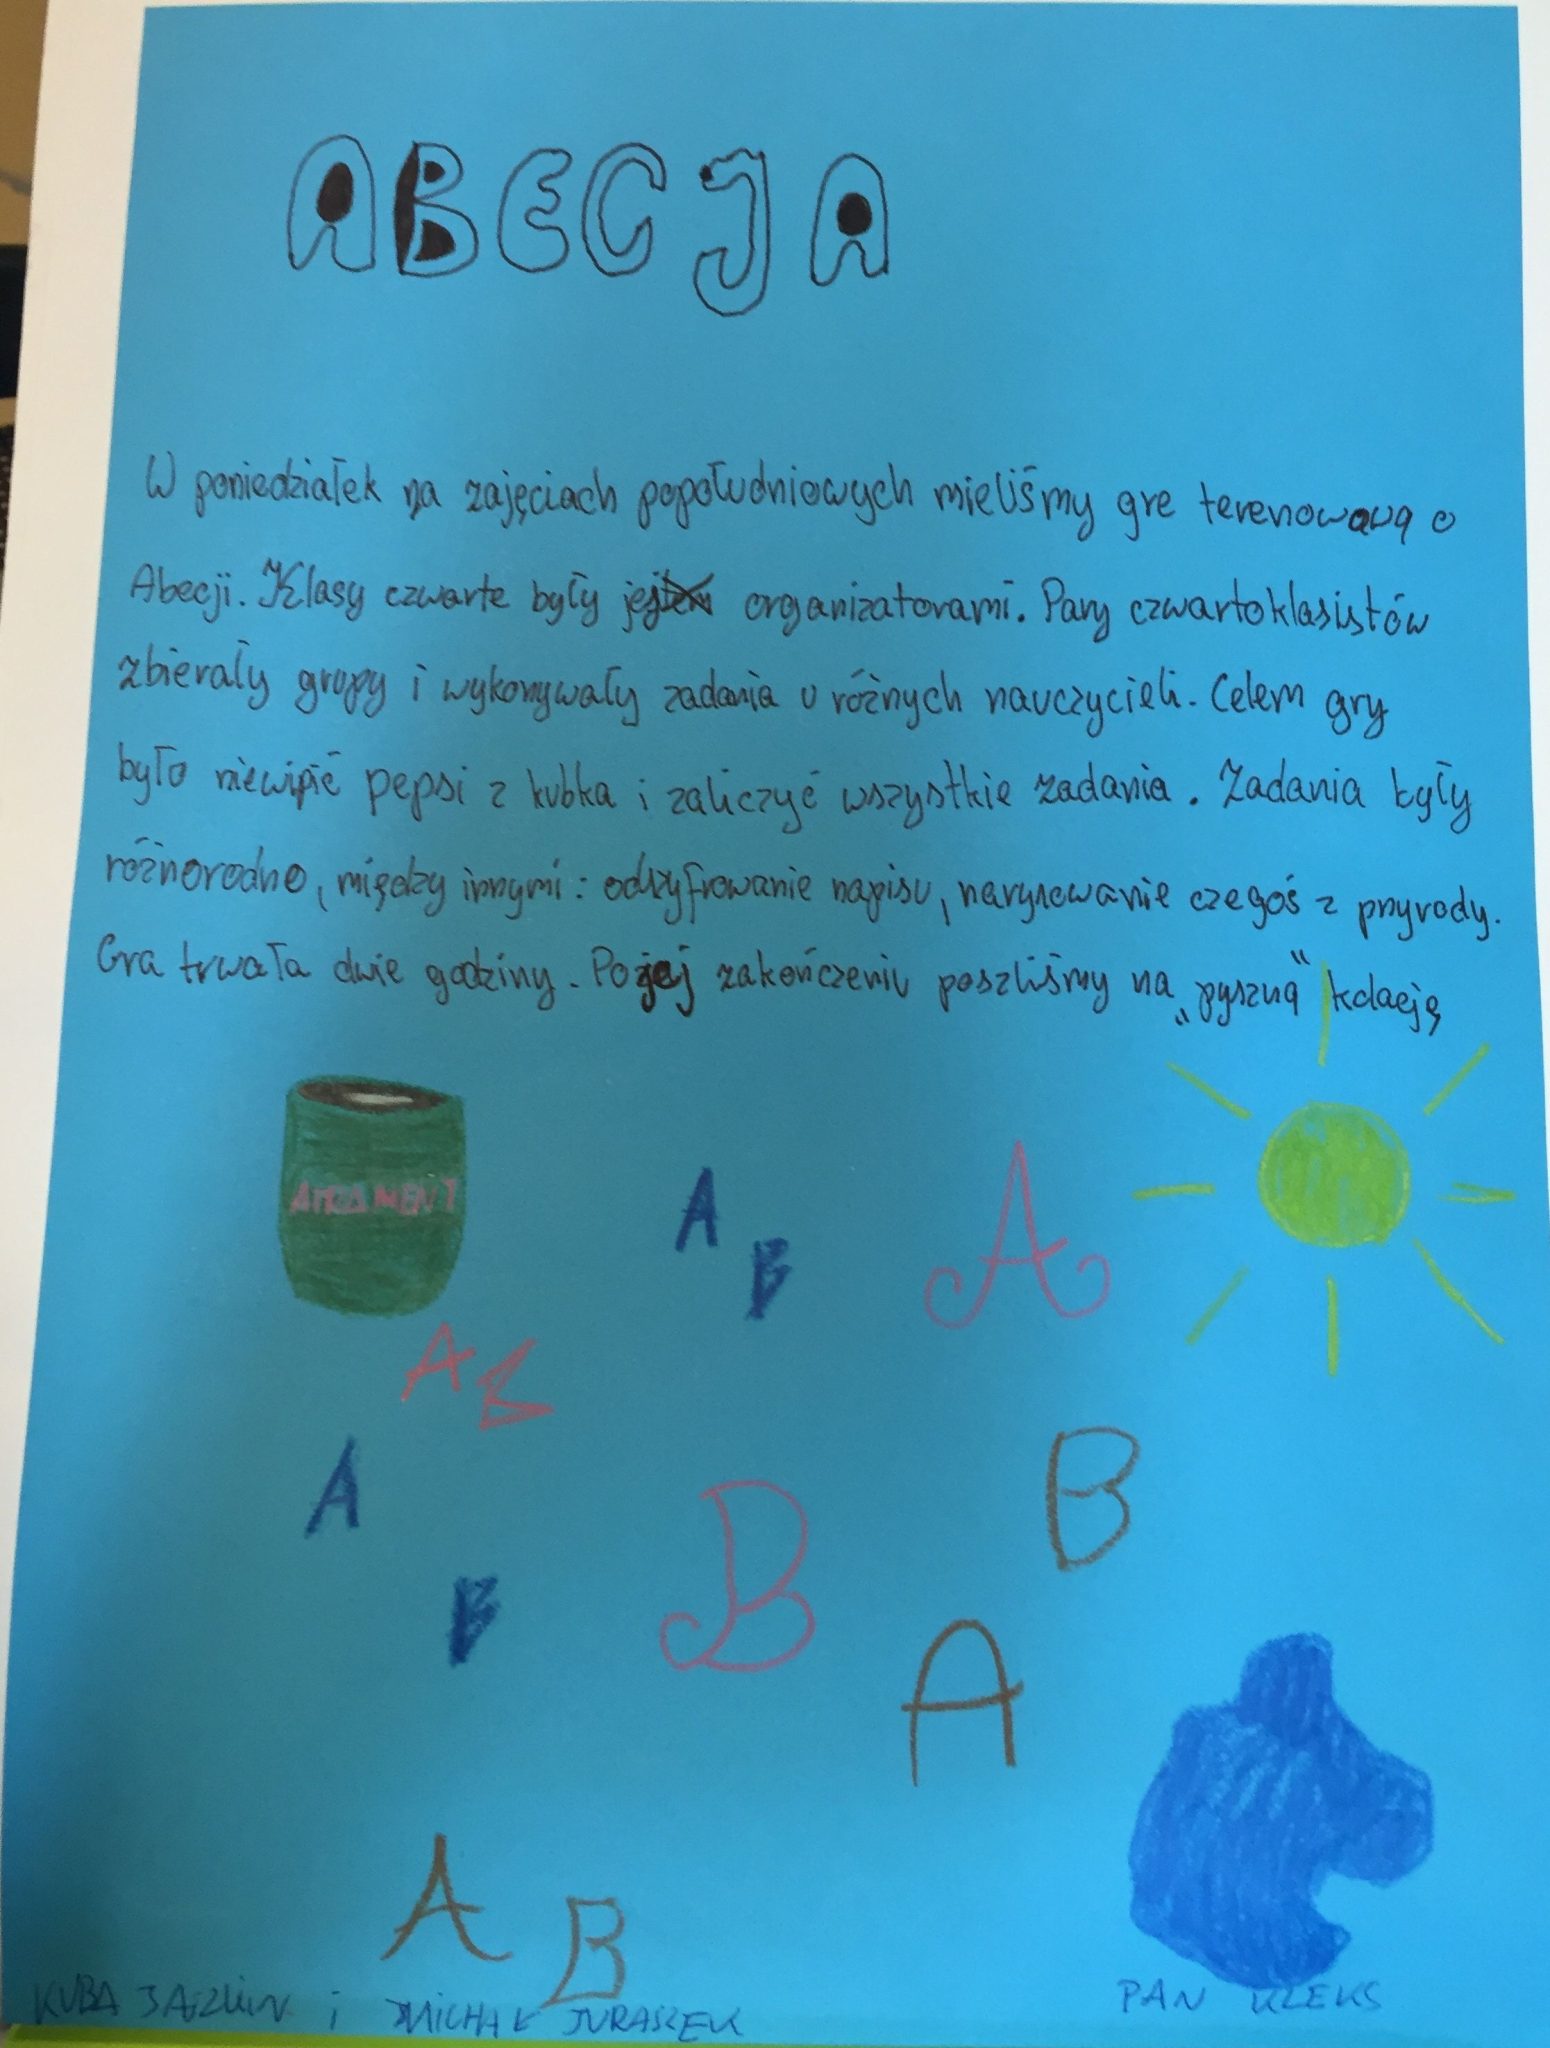 ABECJA
W poniedziałek na zajęciach popołudniowych mieliśmy gre terenową o
Abecji. Klasy czwarte były organizatorami. Pary czwartoklasistów
zbierały grupy i wykonywały zadania u różnych nauczycieli. Celem gry
było niewipić pepsi z kubka i zaliczyć wszystkie zadania. Zadania były
różnorodne, między innymi: odszyfrowanie napisu, narysowanie czegoś z przyrody.
Gra trwała dwie godziny. Po jej zakończeniu poszliśmy na „pyszną" kolację
ATRAMENT
A
B
A
A B
A
B
B
B
A
A B
KUBA i MICHAŁ JURASZEK
PAN KLEKS